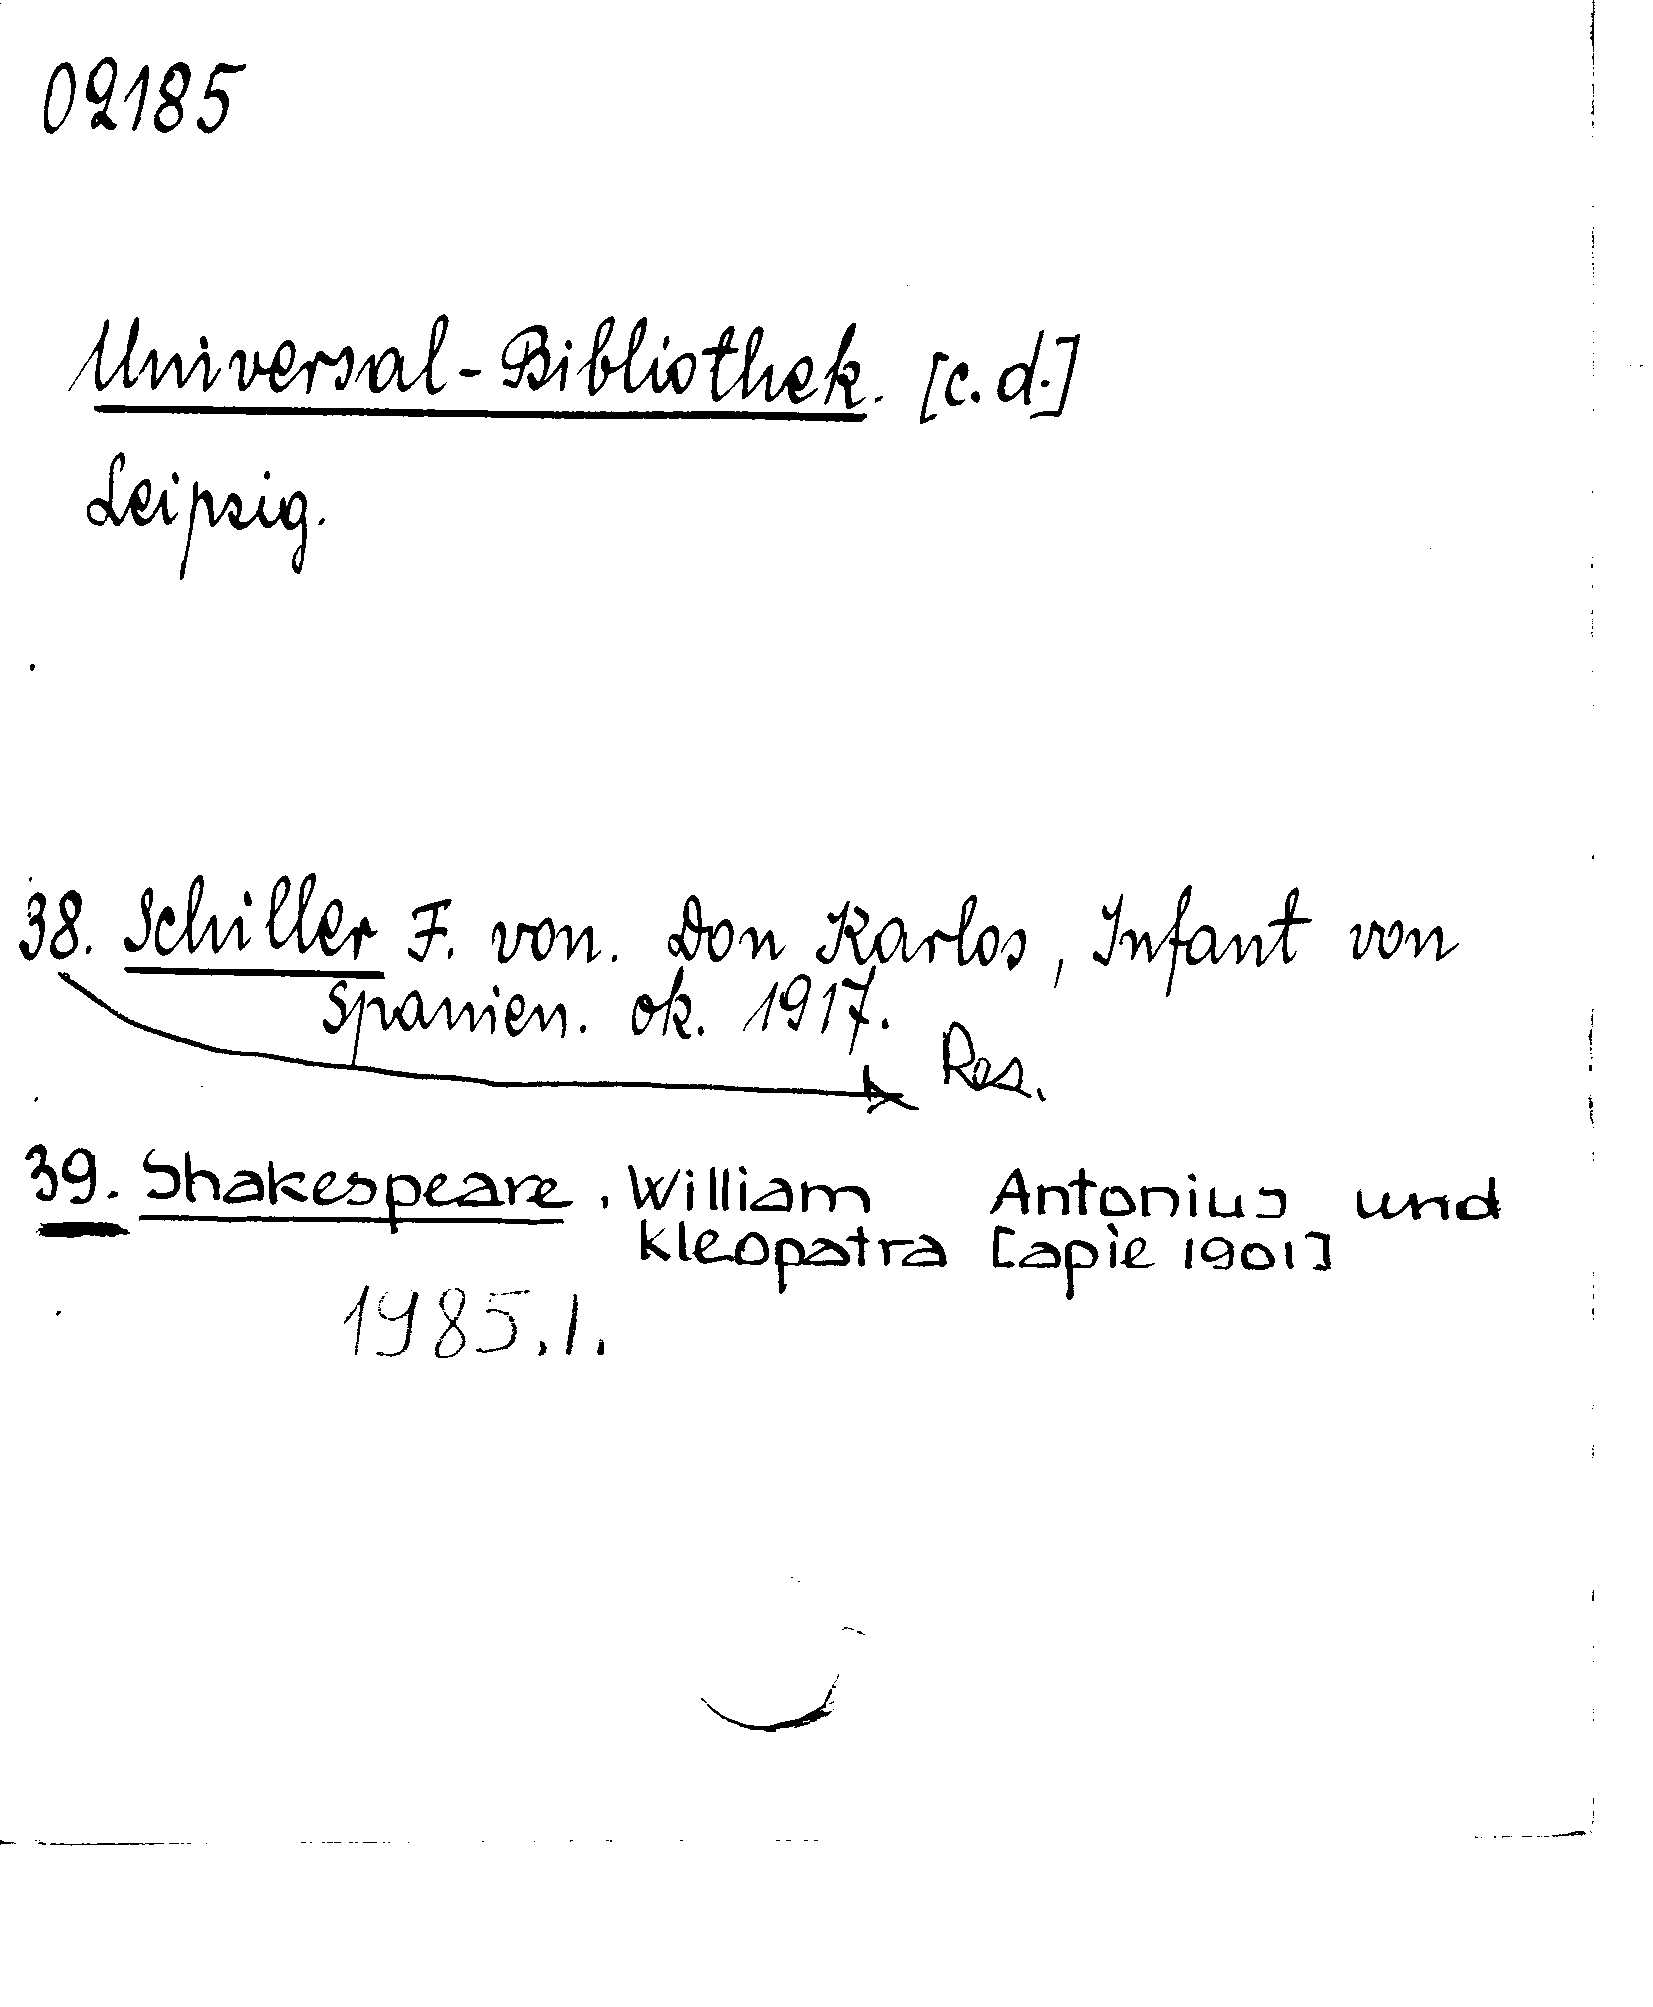 02185
Universal-Bibliothek. [c.d.]
Leipzig.
38. Schiller F. von. Don Karlos, Infant von
Spanien. ok. 1917.
Res.
39. Shakespeare, William Antonius und
Kleopatra [apie 1901]
1985.1.